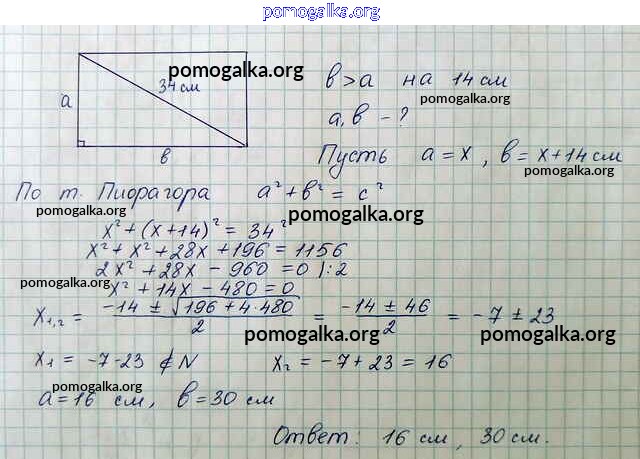 pomogalka.org
a
34 см
в
pomogalka.org
в > a на 14 см
pomogalka.org
a, в - ?
Пусть a = x, в = x + 14 см
pomogalka.org
По т. Пифагора a² + в² = c²
pomogalka.org
x² + (x + 14)² = 34²
pomogalka.org
x² + x² + 28x + 196 = 1156
2x² + 28x - 960 = 0 |:2
pomogalka.org
x² + 14x - 480 = 0
x₁,₂ = (-14 ± √(196 + 4·480))/2 = (-14 ± 46)/2 = -7 ± 23
pomogalka.org
pomogalka.org
x₁ = -7-23 ∉ N x₂ = -7 + 23 = 16
pomogalka.org
a = 16 см, в = 30 см
pomogalka.org
Ответ: 16 см, 30 см.